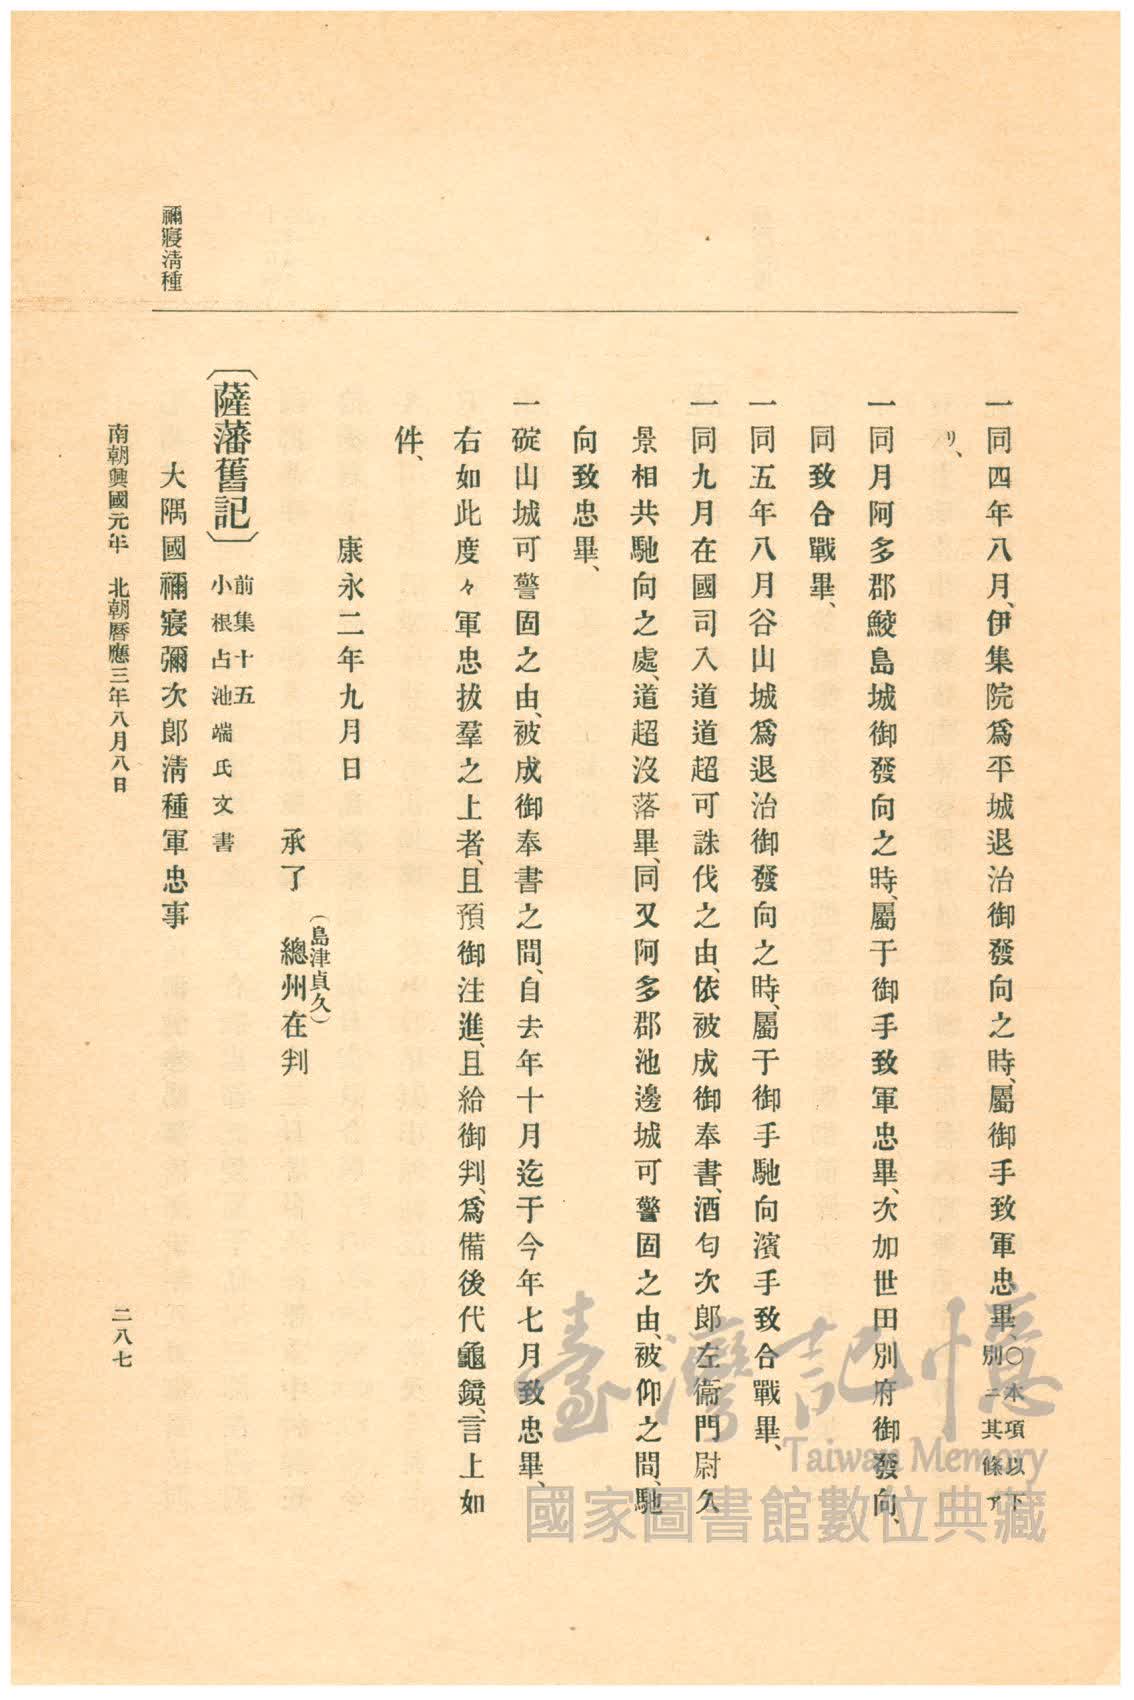 禰寢淸種
一同四年八月、伊集院爲平城退治御發向之時、屬御手致軍忠畢、〇本項以下別ニ其條ア
リ、
一同月阿多郡鮫島城御發向之時、屬于御手致軍忠畢、次加世田別府御發向、
同致合戰畢、
一同五年八月谷山城爲退治御發向之時、屬于御手馳向濱手致合戰畢、
一同九月在國司入道道超可誅伐之由、依被成御奉書、酒匂次郞左衞門尉久
景相共馳向之處、道超沒落畢、同又阿多郡池邊城可警固之由、被仰之間、馳
向致忠畢、
一碇山城可警固之由、被成御奉書之間、自去年十月迄于今年七月致忠畢、
右如此度々軍忠拔羣之上者、且預御注進、且給御判、爲備後代龜鏡、言上如
件、
康永二年九月日
(島津貞久)
承了　總州在判
〔薩藩舊記〕前集十五
小根占池端氏文書
大隅國禰寢彌次郞淸種軍忠事
南朝興國元年　北朝曆應三年八月八日
二八七
臺灣記憶
Taiwan Memory
國家圖書館數位典藏